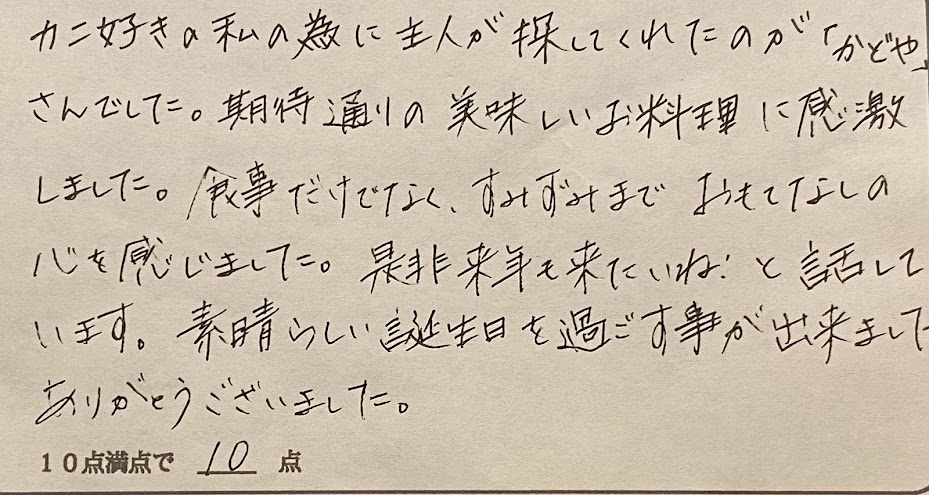 カニ好きの私の為に主人が探してくれたのが「かどや」
さんでした。期待通りの美味しいお料理に感激
しました。食事だけでなく、すみずみまで おもてなしの
心を感じました。是非来年も来たいね！と話して
います。素晴らしい誕生日を過ごす事が出来まして
ありがとうございました。
10点満点で 10 点